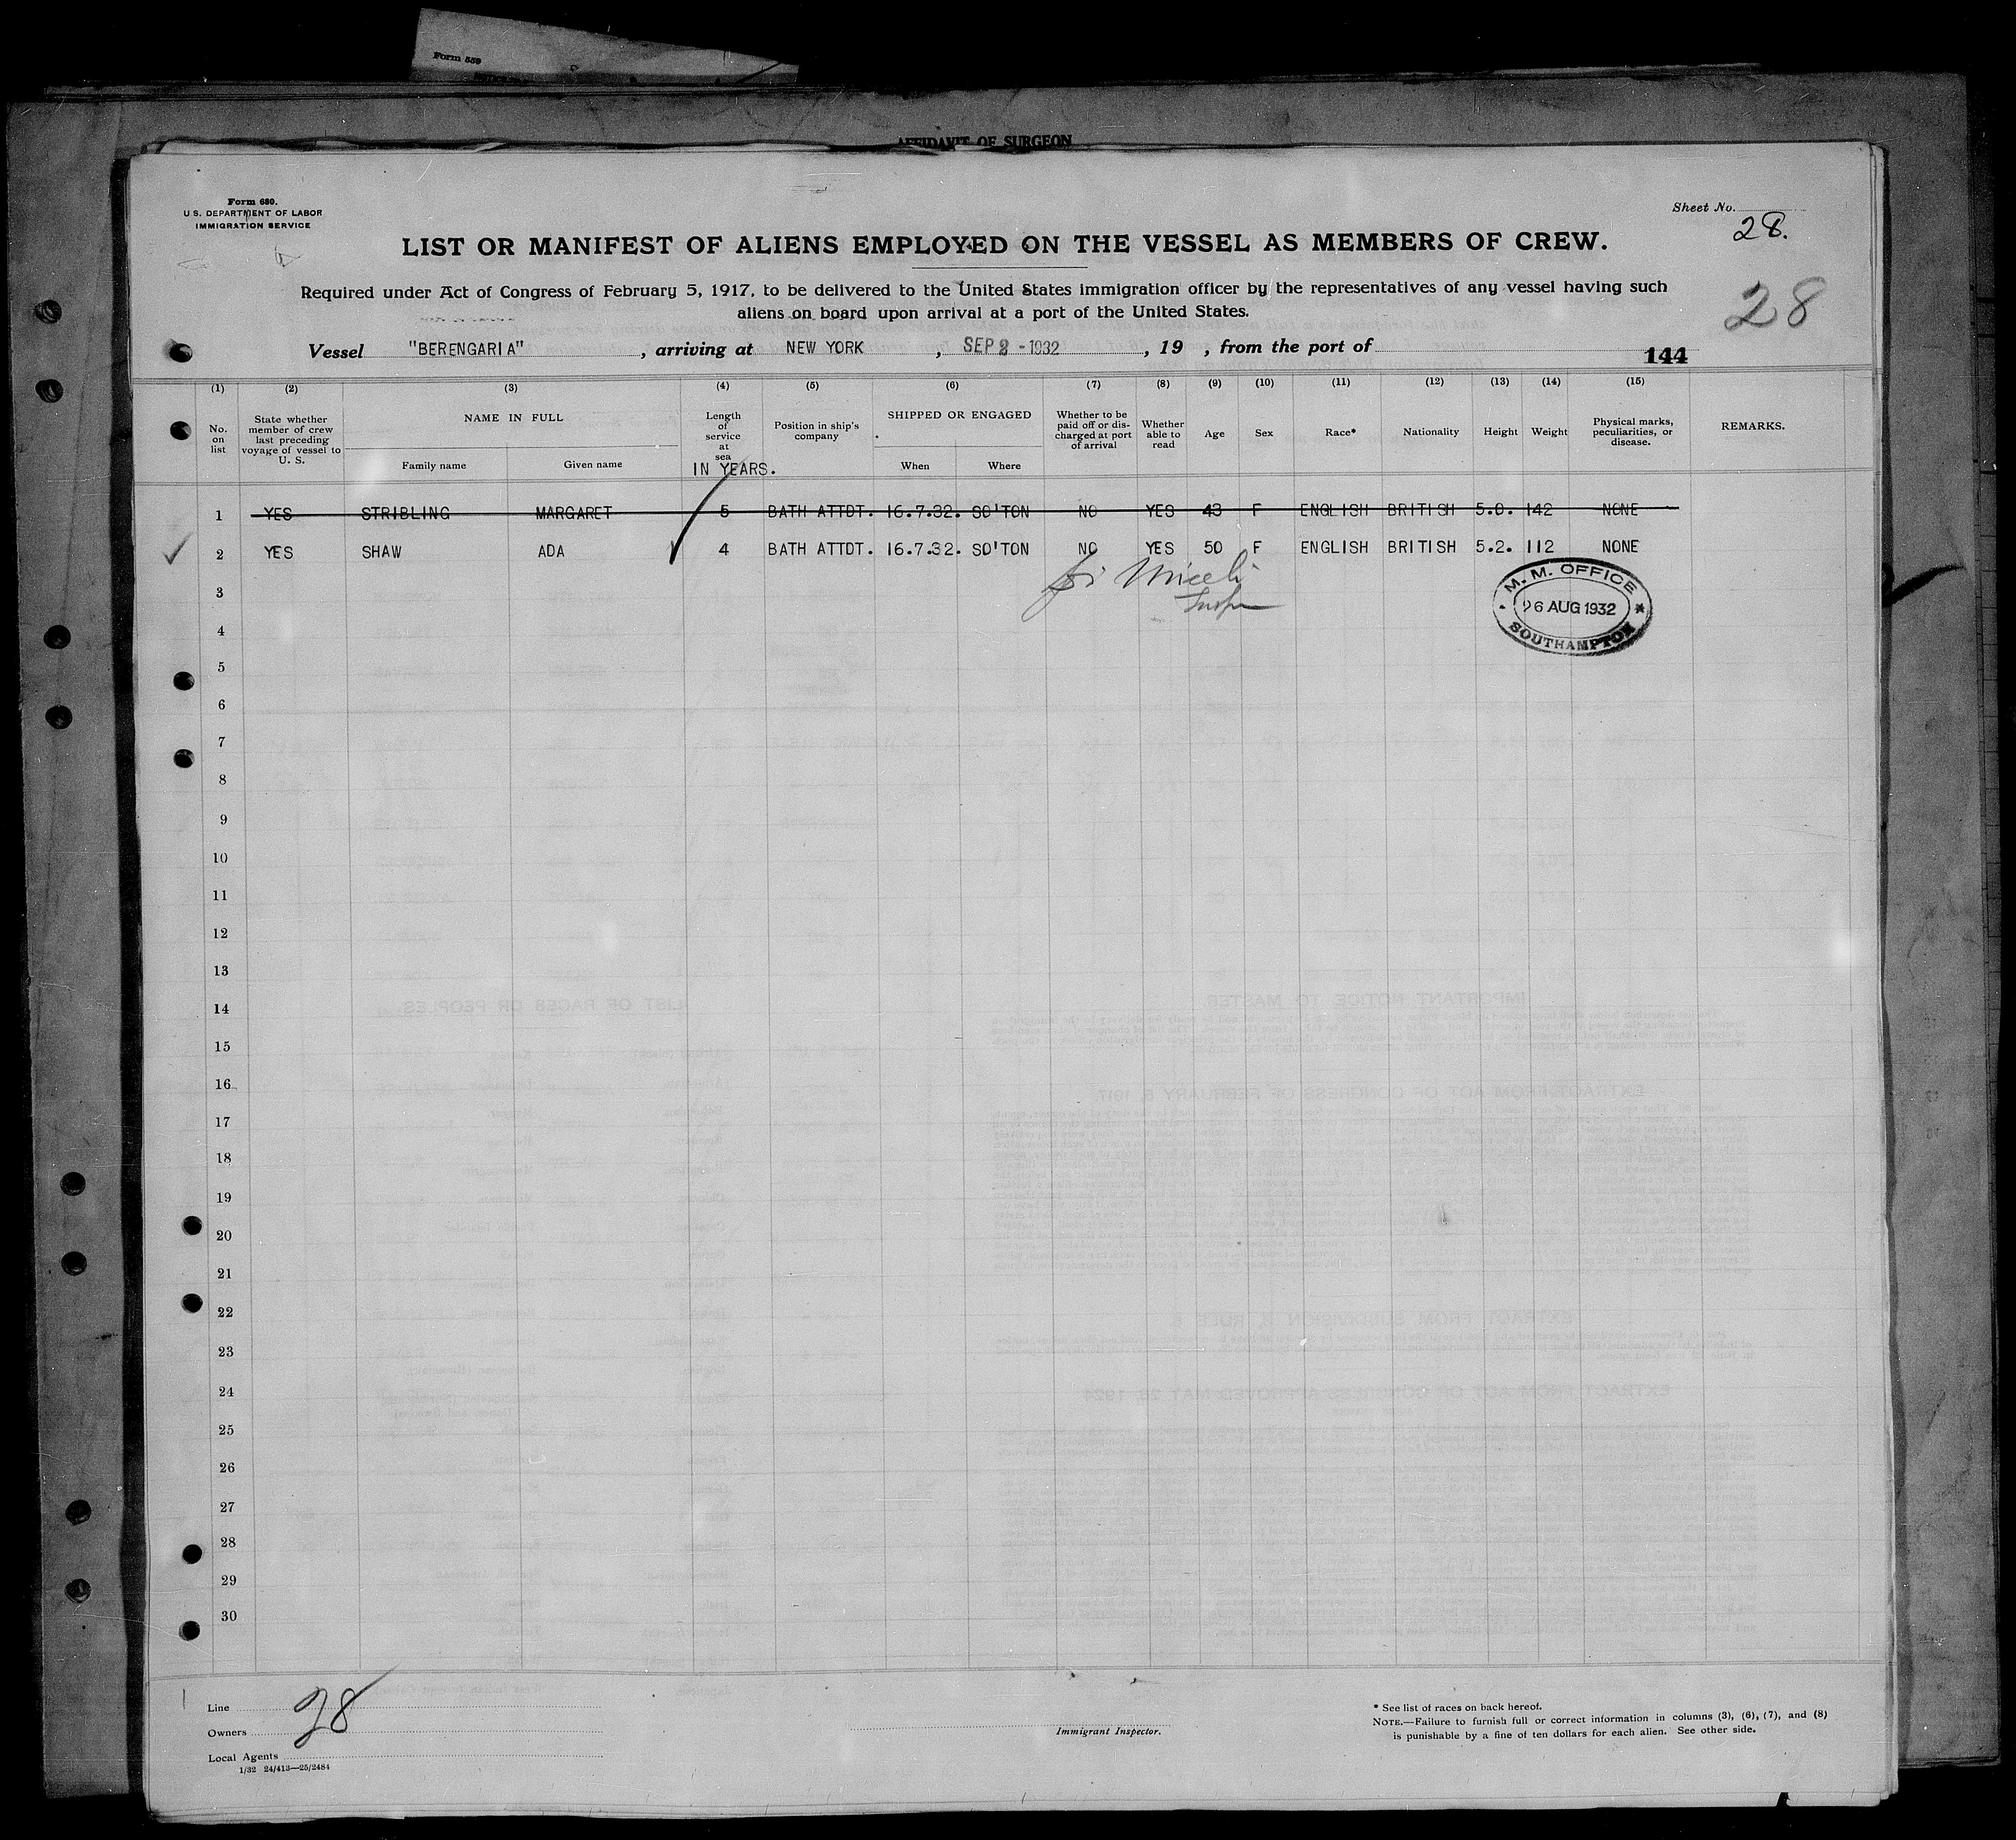 Form 559
AFFIDAVIT OF SURGEON
Form 680.
U S. DEPARTMENT OF LABOR
IMMIGRATION SERVICE
Sheet No.
28.
LIST OR MANIFEST OF ALIENS EMPLOYED ON THE VESSEL AS MEMBERS OF CREW.
Required under Act of Congress of February 5, 1917, to be delivered to the United States immigration officer by the representatives of any vessel having such
aliens on board upon arrival at a port of the United States.
28
Vessel "BERENGARIA", arriving at NEW YORK, SEP 2 - 1932, 19 , from the port of
144
(1) (2) (3) (4) (5) (6) (7) (8) (9) (10) (11) (12) (13) (14) (15)
No. on list State whether member of crew last preceding voyage of vessel to U. S. NAME IN FULL Family name Given name Length of service at sea IN YEARS. Position in ship's company SHIPPED OR ENGAGED When Where Whether to be paid off or discharged at port of arrival Whether able to read Age Sex Race* Nationality Height Weight Physical marks, peculiarities, or disease. REMARKS.
1 YES STRIBLING MARGARET 5 BATH ATTDT. 16.7.32. SO'TON NO YES 43 F ENGLISH BRITISH 5.0. 142 NONE
2 YES SHAW ADA 4 BATH ATTDT. 16.7.32. SO'TON NO YES 50 F ENGLISH BRITISH 5.2. 112 NONE
M. M. OFFICE
26 AUG 1932
SOUTHAMPTON
3
4
5
6
7
8
9
10
11
12
13
14
15
16
17
18
19
20
21
22
23
24
25
26
27
28
29
30
Line
28
Owners
Local Agents
1/32 24/413—25/2484
Immigrant Inspector.
* See list of races on back hereof.
NOTE.—Failure to furnish full or correct information in columns (3), (6), (7), and (8)
is punishable by a fine of ten dollars for each alien. See other side.